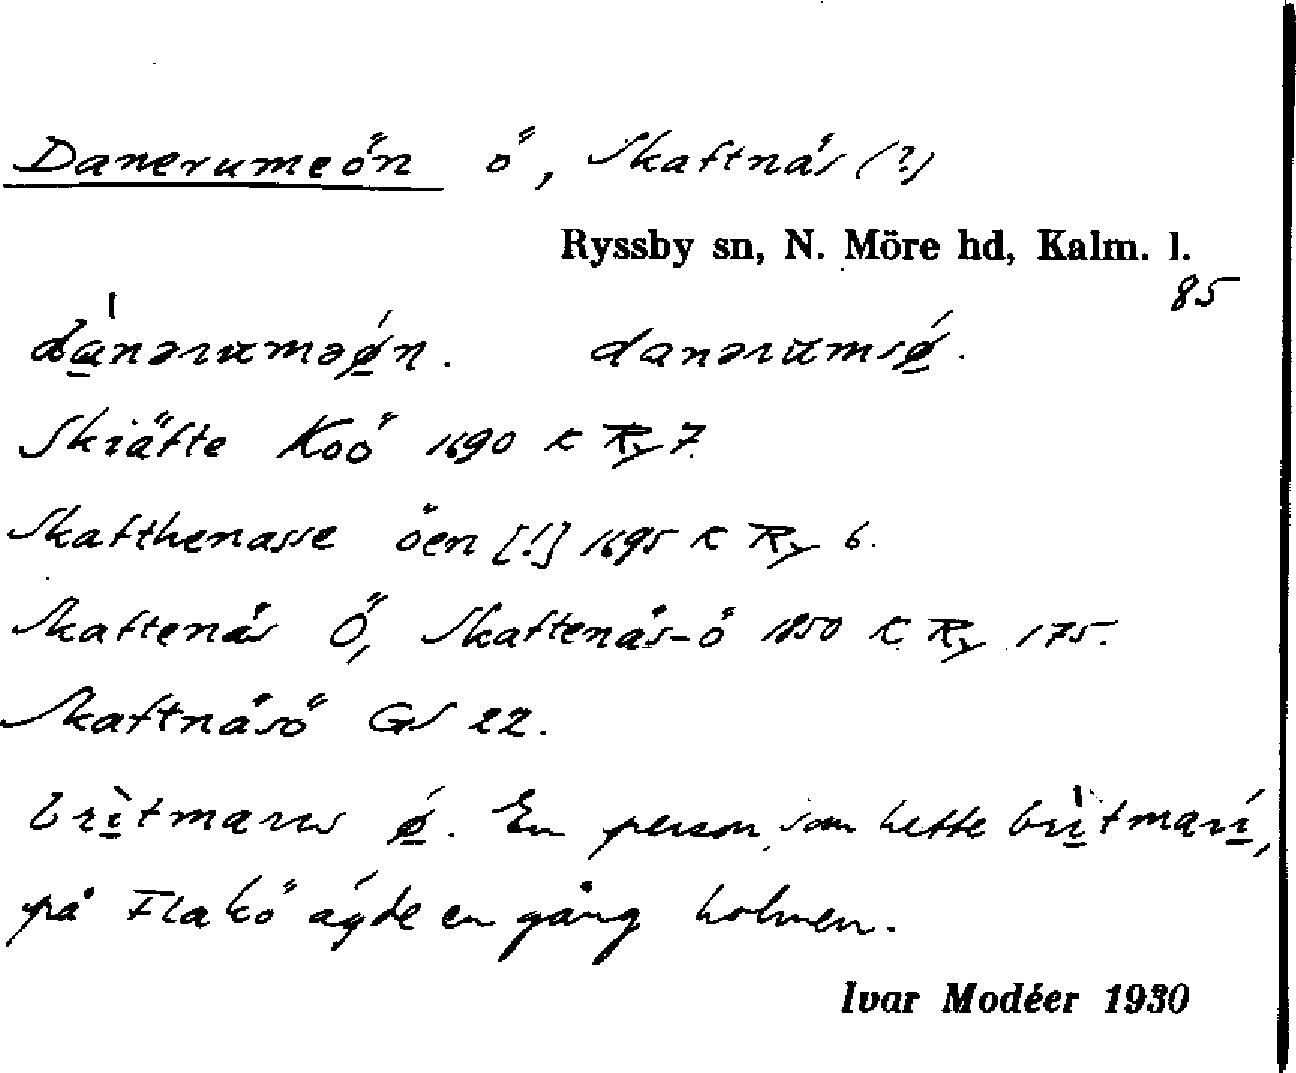 Danerumeön ö, Skaftnäs (?)
Ryssby sn, N. Möre hd, Kalm. l.
85
dánəruməǿn. danərumsǿ.
Skiäfte Koö 1690 K Ry 7.
Skafthenasse öen [!] 1695 K Ry 6.
Skaftenäs Ö, Skaftenäs-ö 1850 K Ry 175.
Skaftnäsö GS 22.
brìtmarıs ǿ. En person, som hette brìtmarí,
på Flakö ägde en gång holmen.
Ivar Modéer 1930